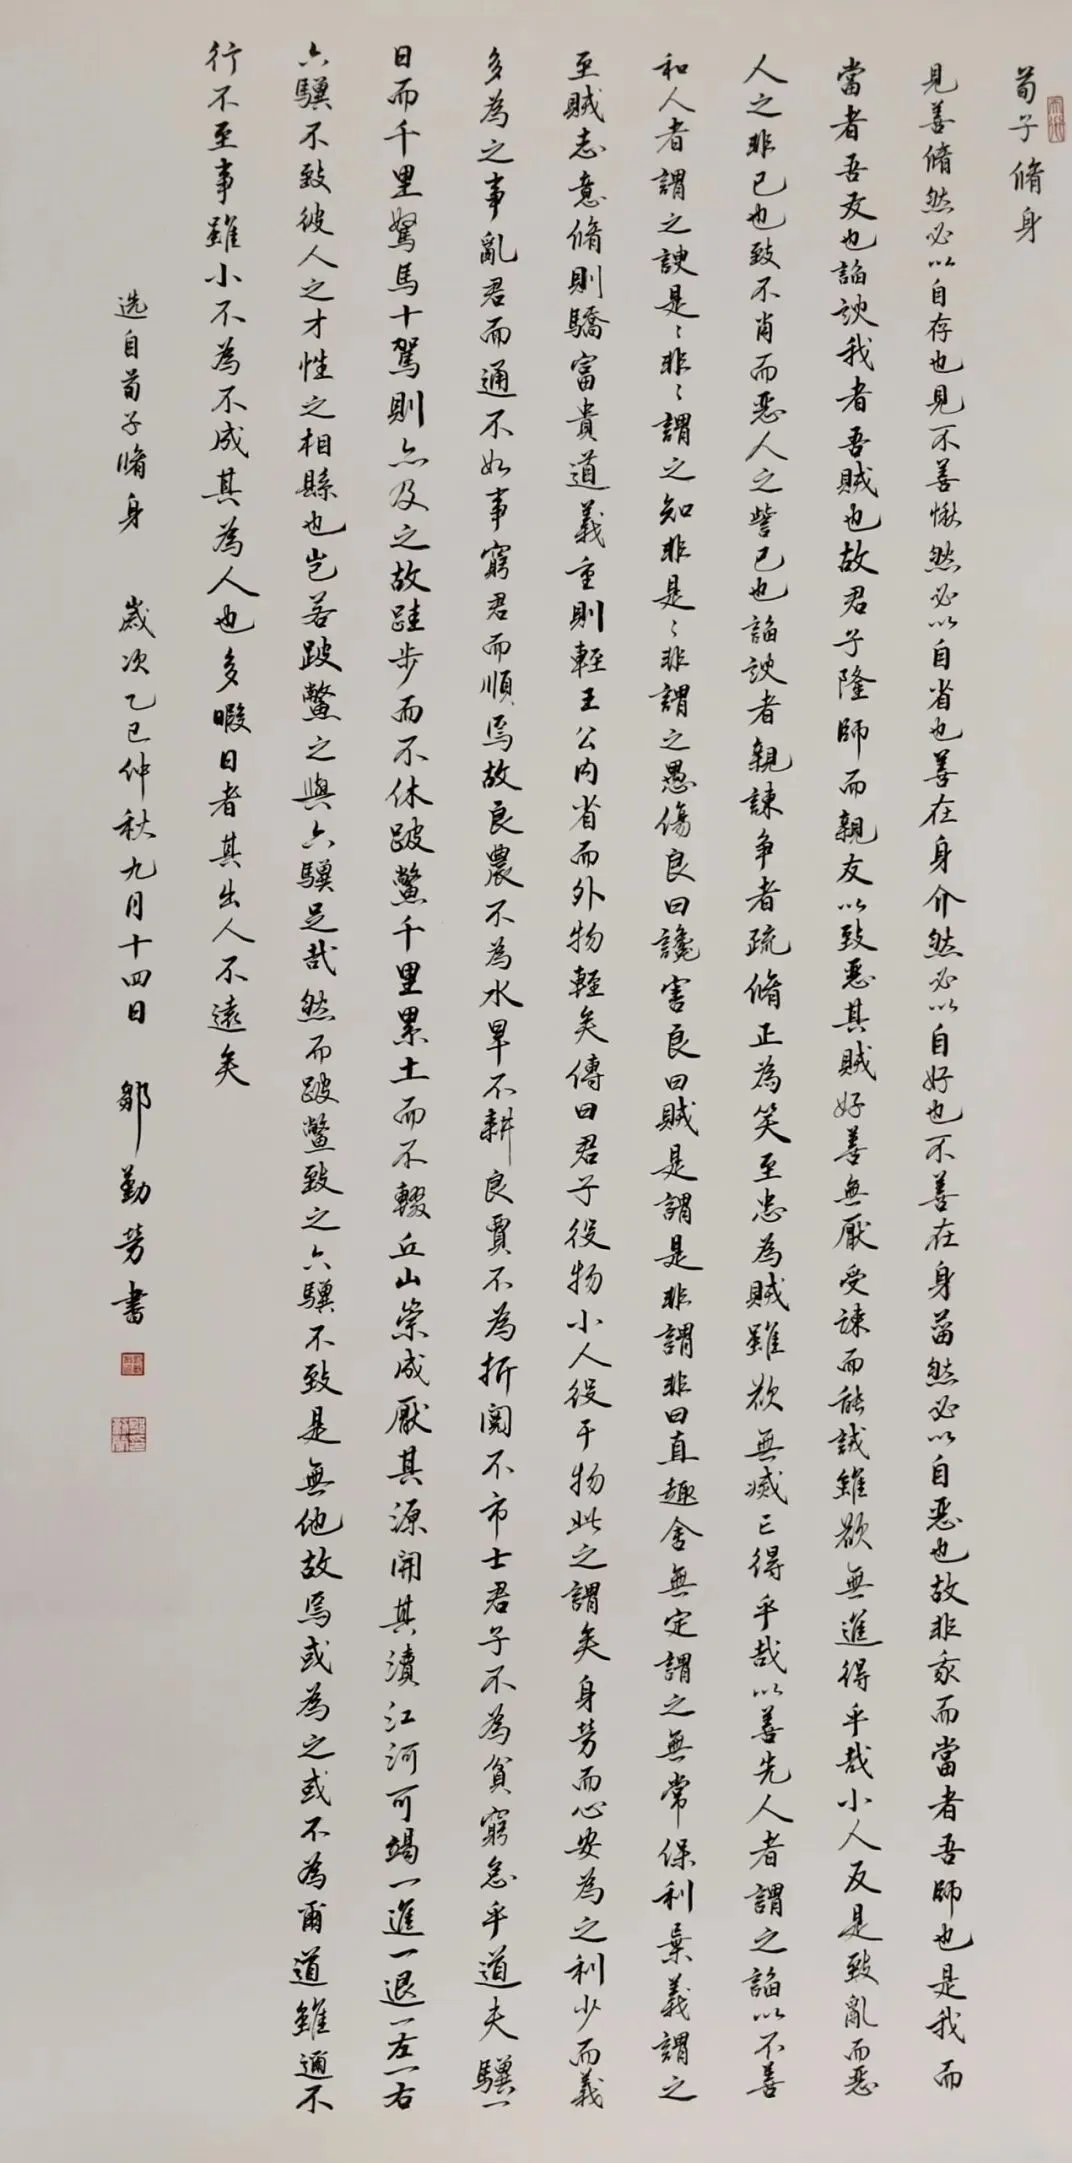 荀子脩身
見善脩然必以自存也見不善愀然必以自省也善在身介然必以自好也不善在身菑然必以自惡也故非我而當者吾師也是我而
當者吾友也諂諛我者吾賊也故君子隆師而親友以致惡其賊好善無厭受諫而能誡雖欲無進得乎哉小人反是致亂而惡
人之非己也致不肖而惡人之訾己也諂諛者親諫争者疏脩正為笑至忠為賊雖欲無滅亡得乎哉以善先人者謂之諂以不善
和人者謂之諛是〻非〻謂之知非是〻非謂之愚傷良曰讒害良曰賊是謂是非謂非曰直趣舍無定謂之無常保利棄義謂之
至賊志意脩則驕富貴道義重則輕王公内省而外物輕矣傳曰君子役物小人役于物此之謂矣身勞而心安為之利少而義
多為之事亂君而通不如事窮君而順焉故良農不為水旱不耕良賈不為折閱不市士君子不為貧窮怠乎道夫驥一
日而千里駑馬十駕則亦及之故跬步而不休跛鱉千里累土而不輟丘山崇成厭其源開其瀆江河可竭一進一退一左一右
六驥不致彼人之才性之相縣也豈若跛鱉之與六驥足哉然而跛鱉致之六驥不致是無他故焉或為之或不為爾道雖邇不
行不至事雖小不為不成其為人也多暇日者其出人不遠矣
选自荀子脩身 歲次乙巳仲秋九月十四日 鄒勤芳書